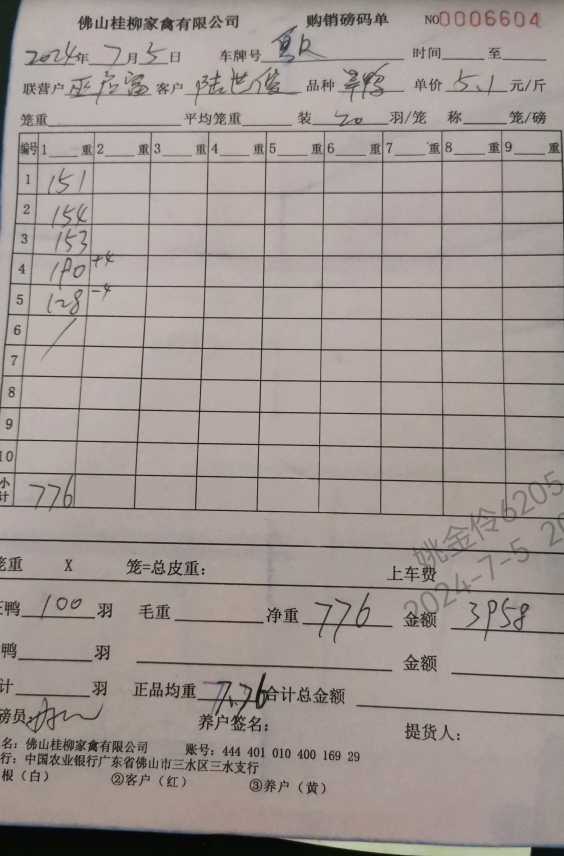 佛山桂柳家禽有限公司 购销磅码单 NO0006604
2024年7月5日 车牌号 时间 至
联营户 巫启富 客户 陆世俊 品种 单价 5.1 元/斤
笼重 平均笼重 装 20 羽/笼 称 笼/磅
编号 1 重 2 重 3 重 4 重 5 重 6 重 7 重 8 重 9 重
1 151
2 154
3 153
4 190 +4
5 128 -4
6 /
7
8
9
10
小计 776
笼重 X 笼=总皮重: 上车费
姚金伶6205
2024-7-5 20
鸭 100 羽 毛重 净重 776 金额 3958
鸭 羽 金额
计 羽 正品均重 7.76 合计总金额
磅员: 养户签名: 提货人:
名: 佛山桂柳家禽有限公司 账号: 444 401 010 400 169 29
行: 中国农业银行广东省佛山市三水区三水支行
根(白) ②客户(红) ③养户(黄)